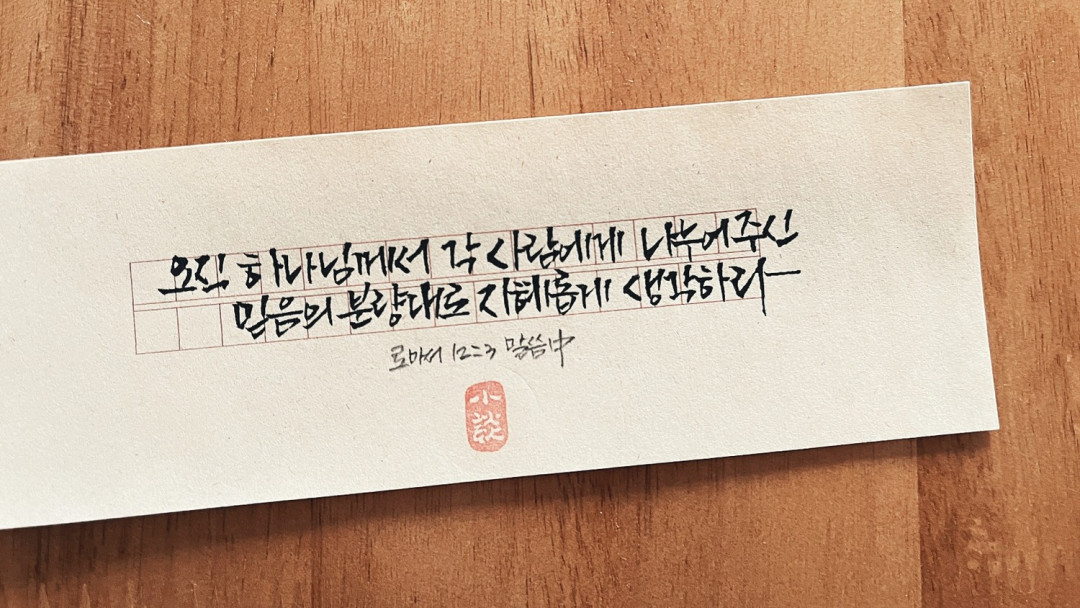 오직 하나님께서 각 사람에게 나누어주신
믿음의 분량대로 지혜롭게 생각하라
로마서 12:3 말씀中
小
談